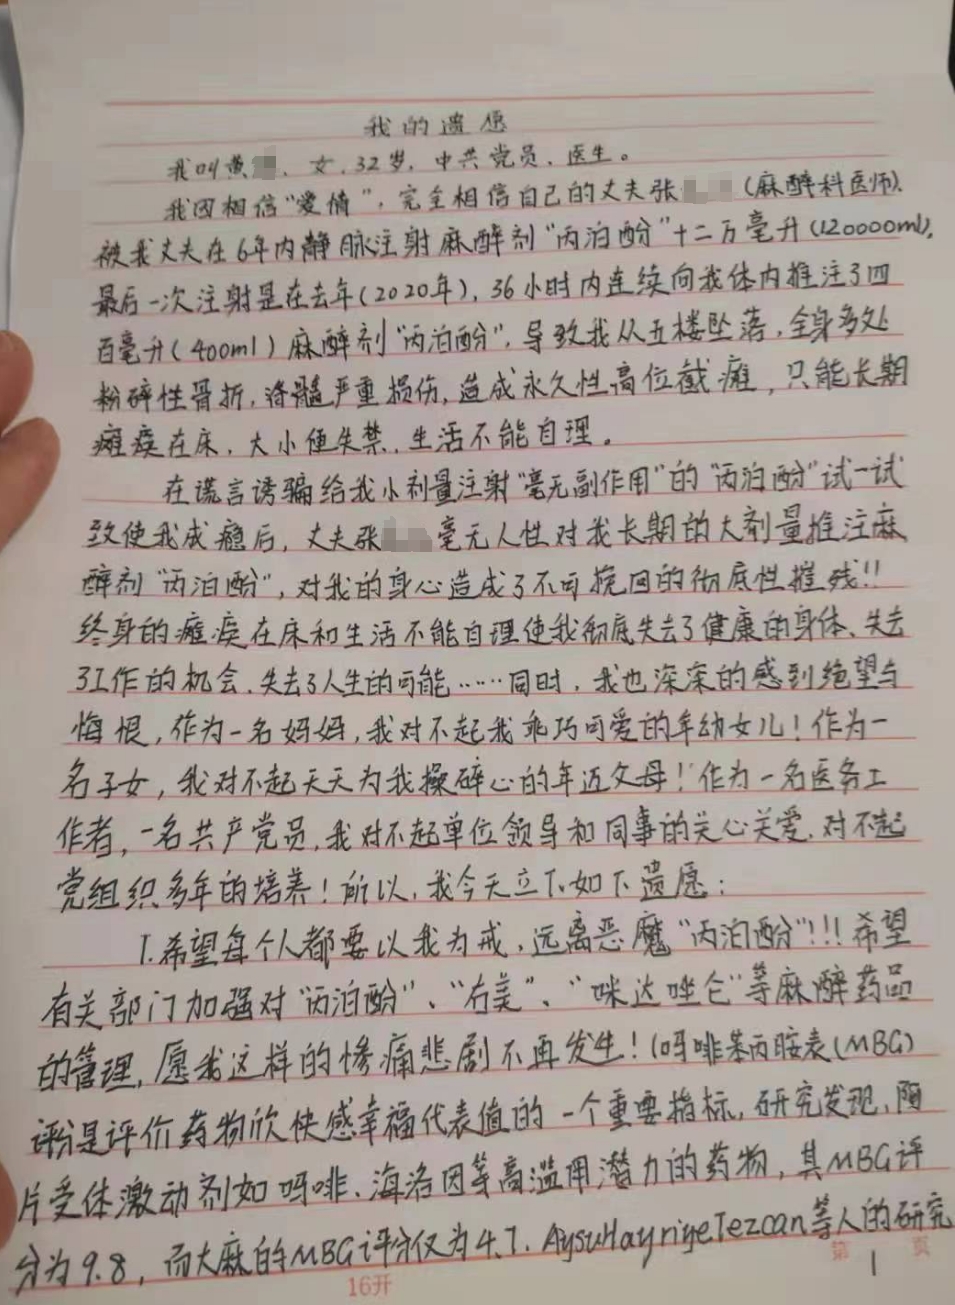 我的遗愿
我叫黄、女、32岁，中共党员、医生。
我因相信“爱情”，完全相信自己的丈夫张（麻醉科医师），
被我丈夫在6年内静脉注射麻醉剂“丙泊酚”十二万毫升(120000ml)，
最后一次注射是在去年(2020年)，36小时内连续向我体内推注了四
百毫升(400ml)麻醉剂“丙泊酚”，导致我从五楼坠落，全身多处
粉碎性骨折，脊髓严重损伤，造成永久性高位截瘫，只能长期
瘫痪在床、大小便失禁、生活不能自理。
在谎言诱骗给我小剂量注射“毫无副作用”的“丙泊酚”试一试
致使我成瘾后，丈夫张毫无人性对我长期的大剂量推注麻
醉剂“丙泊酚”，对我的身心造成了不可挽回的彻底性摧残!!
终身的瘫痪在床和生活不能自理使我彻底失去了健康的身体、失去
了工作的机会、失去了人生的可能……同时，我也深深的感到绝望与
悔恨，作为一名妈妈，我对不起我乖巧可爱的年幼女儿！作为一
名子女，我对不起天天为我操碎心的年迈父母！作为一名医务工
作者，一名共产党员，我对不起单位领导和同事的关心关爱、对不起
党组织多年的培养！所以，我今天立下如下遗愿：
1.希望每个人都要以我为戒，远离恶魔“丙泊酚”!!!希望
有关部门加强对“丙泊酚”、“右美”、“咪达唑仑”等麻醉药品
的管理，愿我这样的惨痛悲剧不再发生！(吗啡苯丙胺表(MBG)
评分是评价药物欣快感幸福代表值的一个重要指标，研究发现，阿
片受体激动剂如吗啡、海洛因等高滥用潜力的药物，其MBG评
分为9.8，而大麻的MBG评分仅为4.7. AysuHayriyeTezcan等人的研究
16开
第1页